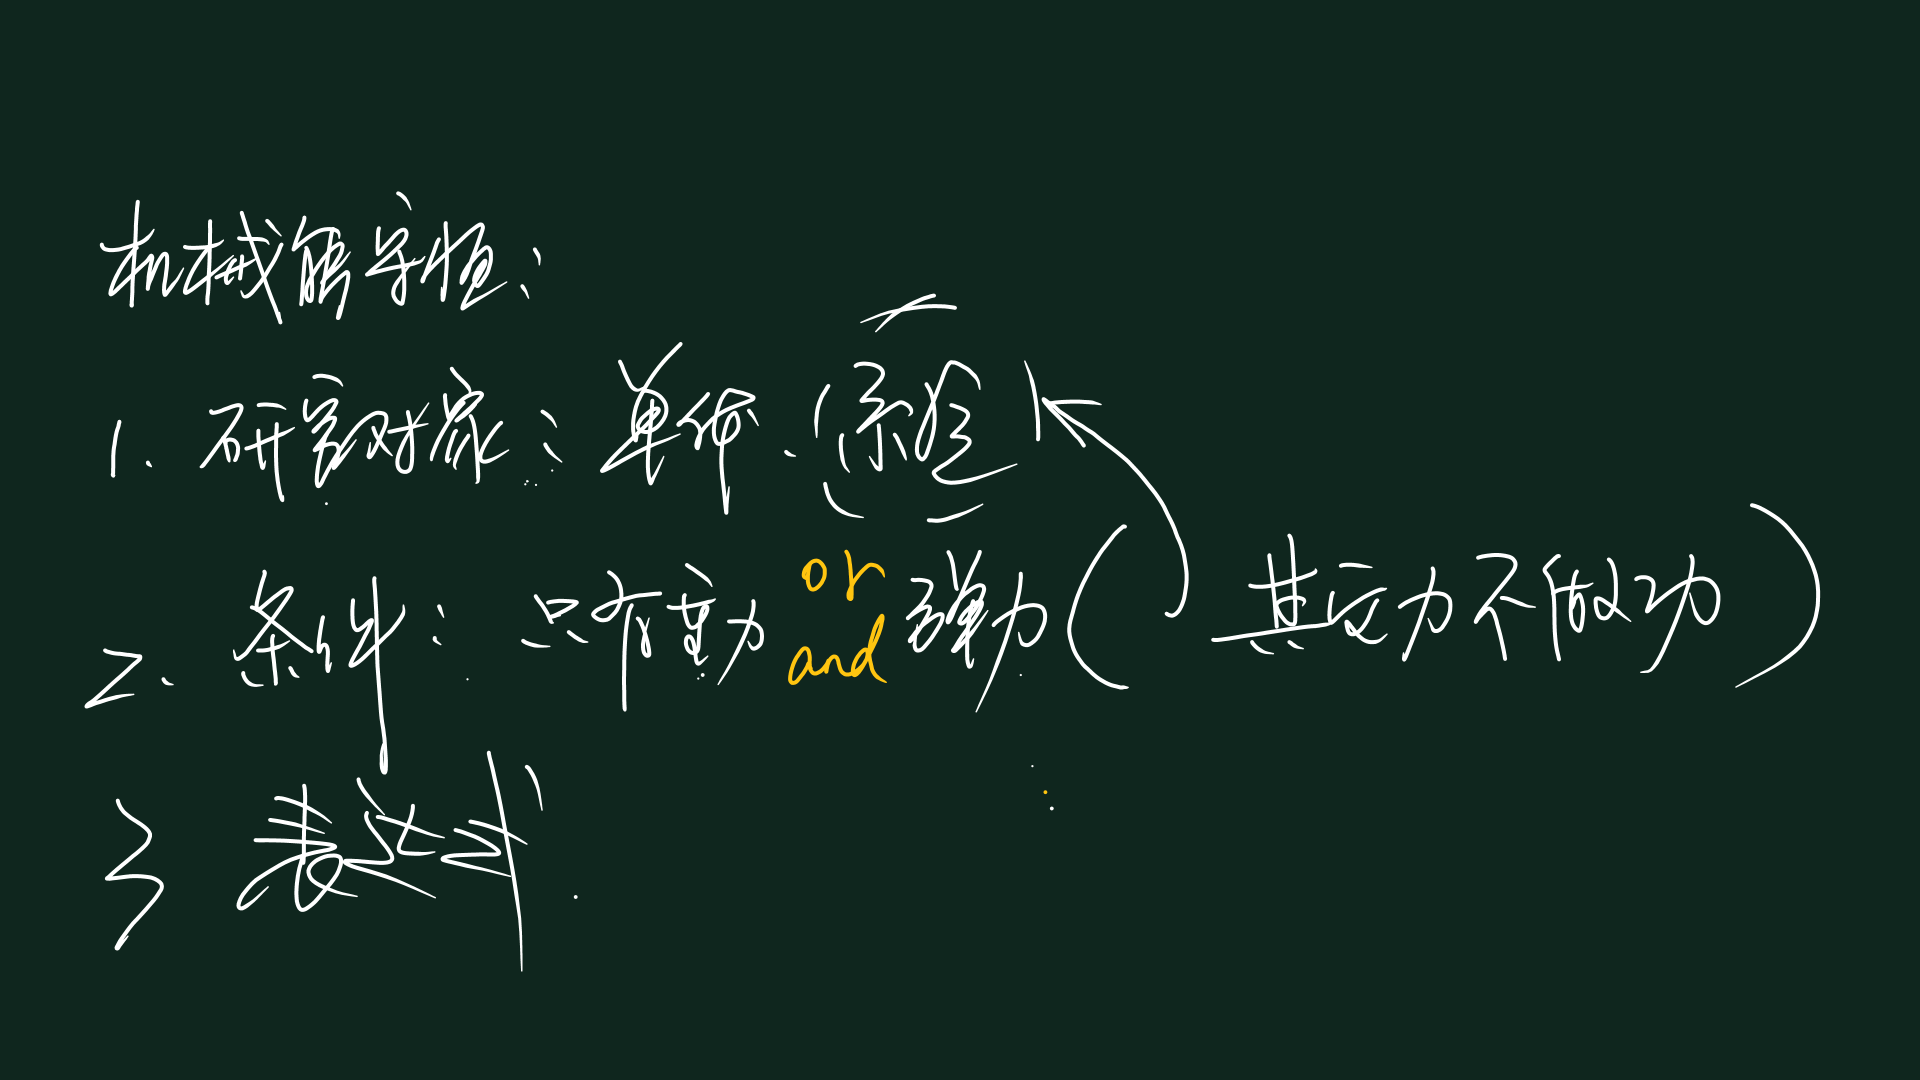 机械能守恒:
1. 研究对象:单体、(系统)
2、条件:只有重力 or and 弹力(其它力不做功)
3 表达式